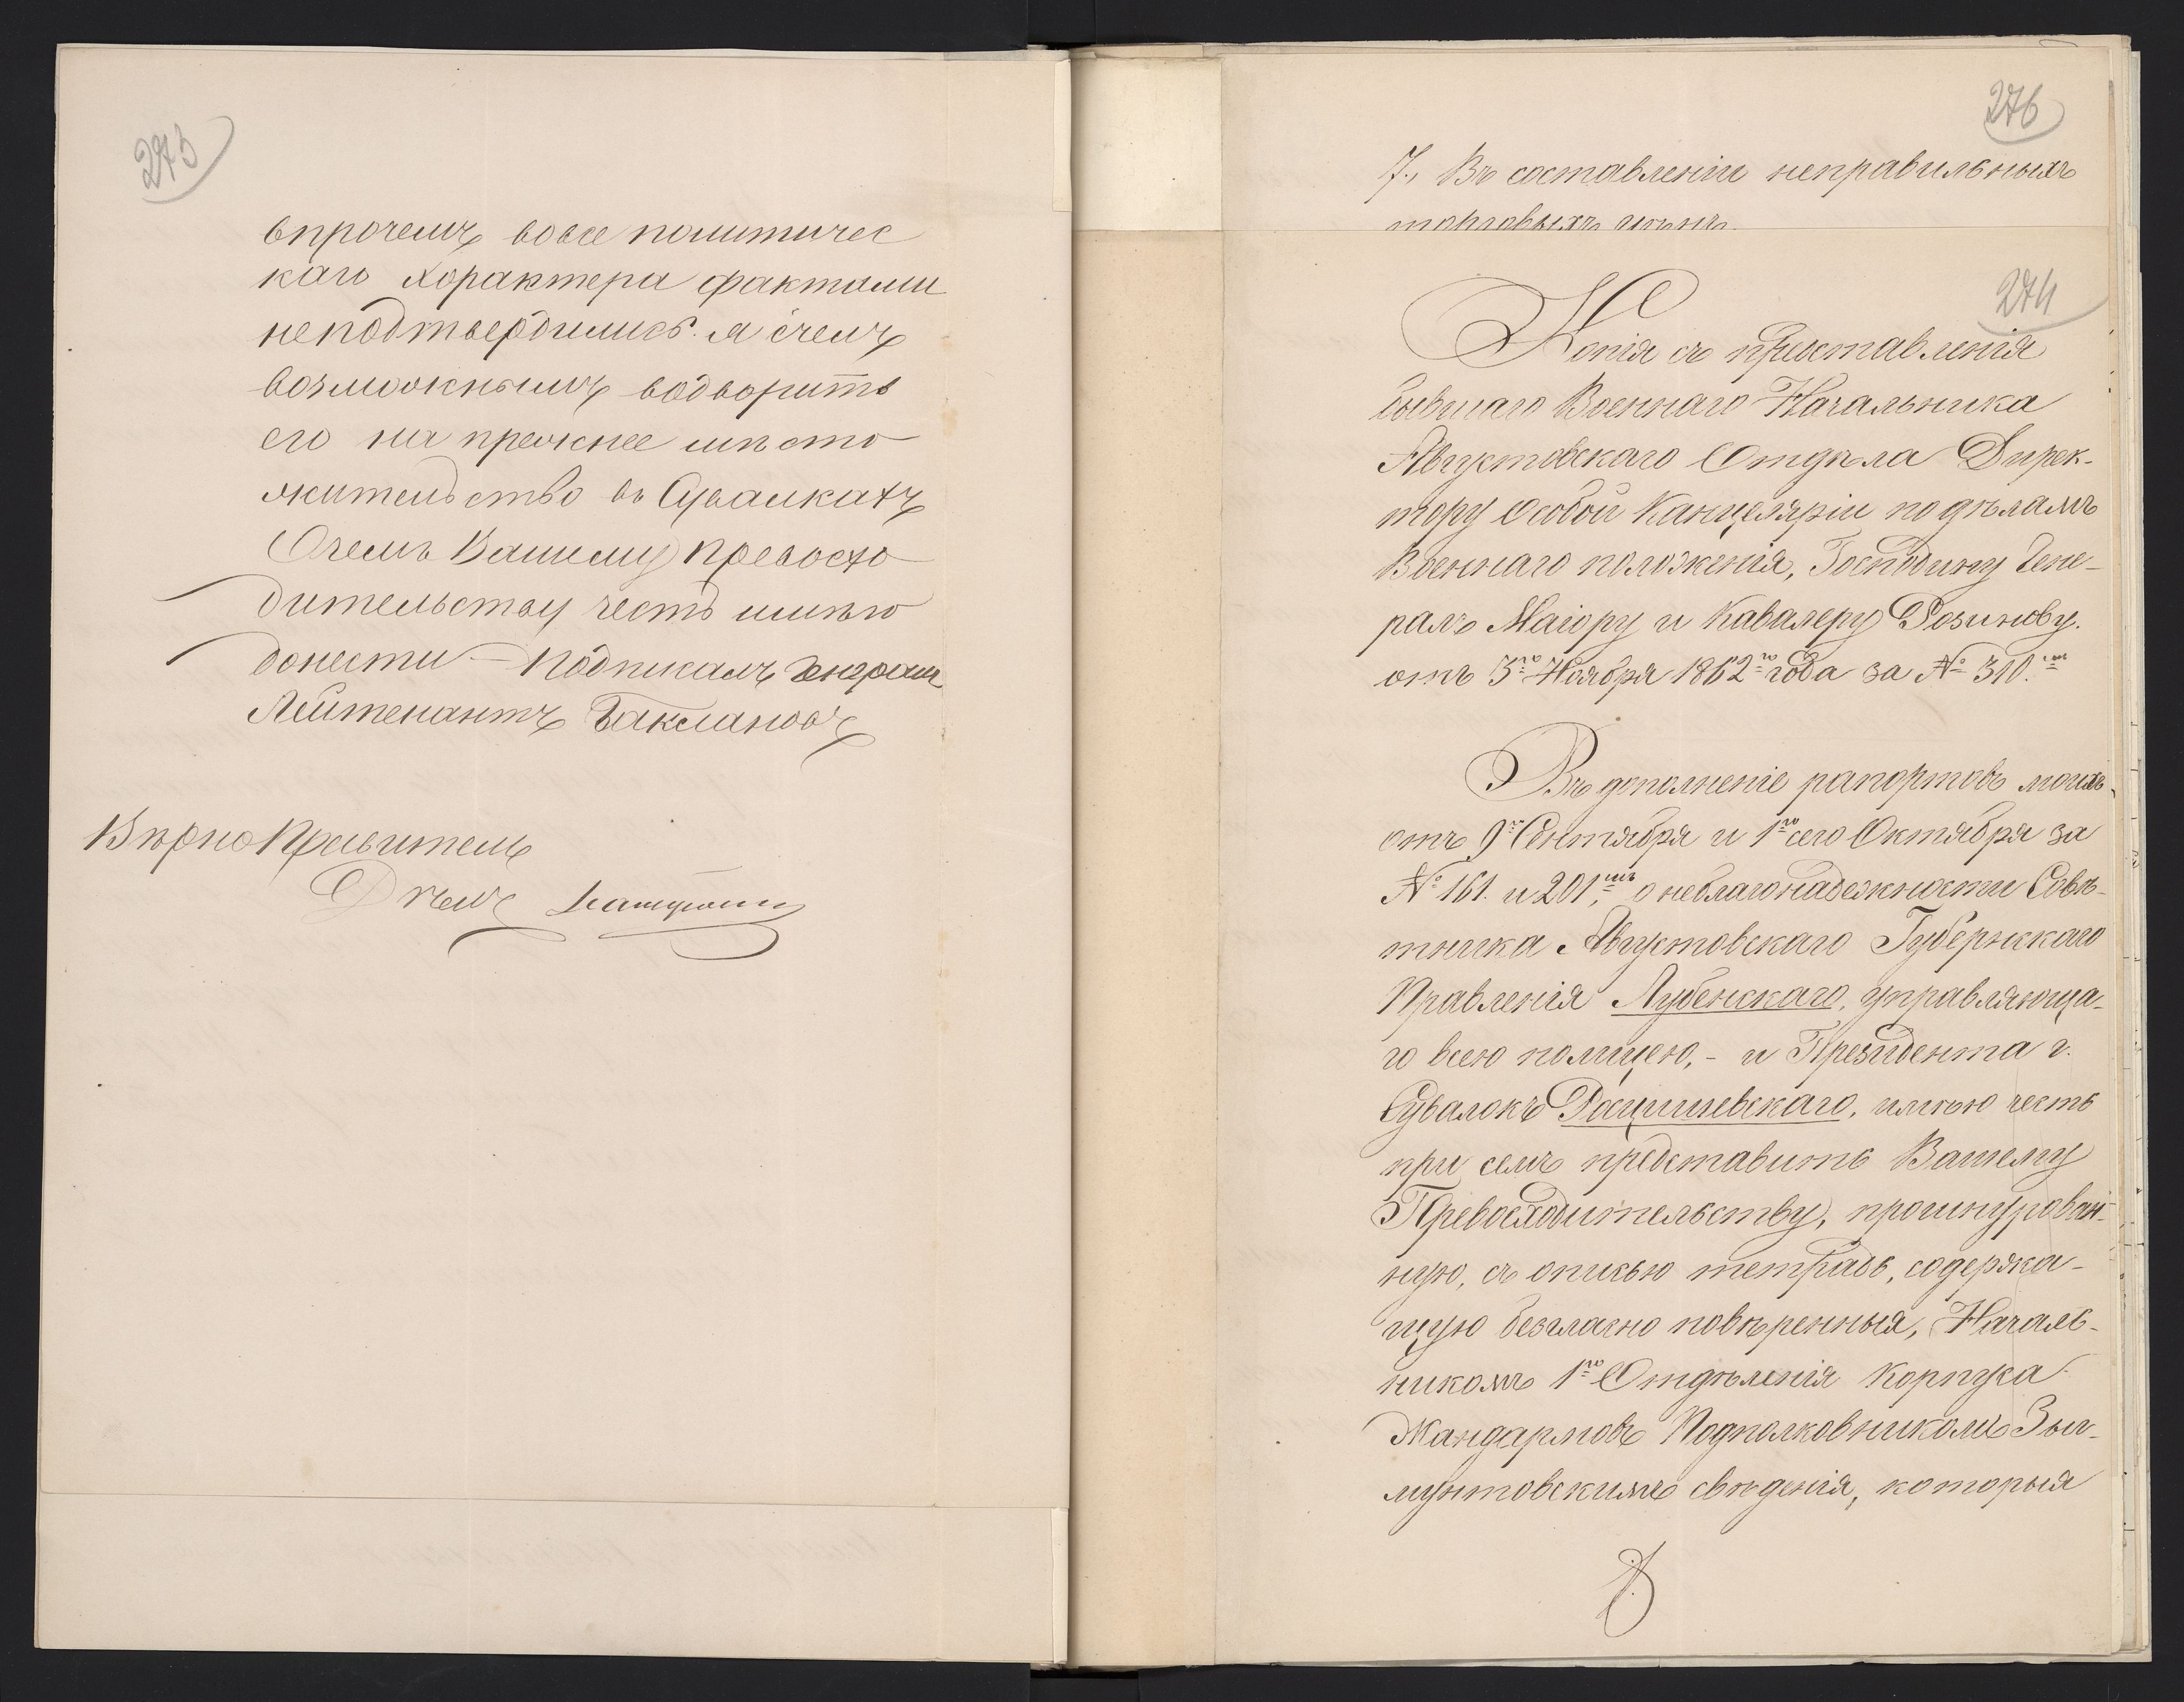 273
впрочемъ вовсе политичес
каго характера фактами
неподтвердились. я счелъ
возможнымъ водворить
его на прежнее мѣсто
жительство въ Сувалкахъ
О чемъ Вашему Превосхо
дительству честь имѣю
донести — Подписалъ
Лейтенантъ Баклановъ
Вѣрно Правитель
Дѣлъ
276
7., Въ составленіи неправильныхъ
торговыхъ
274
Копія съ представленія
бывшаго Военнаго Начальника
Августовскаго Отдѣла Дирек-
тору Особой Канцеляріи по дѣламъ
Военнаго положенія, Господину Гене-
ралъ Маіору и Кавалеру Розинову.
отъ 3го Ноября 1862го года за № 310.мъ
Въ дополненіе рапортовъ моихъ
отъ 9го Сентября и 1го сего Октября за
№ 161. и 201,мъ о неблагонадежности Совѣ-
тника Августовскаго Губернскаго
Правленія Лубенскаго, управляюща-
го всею полицею, - и Президента г.
Сувалокъ Росцишевскаго, имѣю честь
при семъ представить Вашему
Превосходительству, прошнурован-
ную, съ описью тетрадь, содержа-
щую безгласно повѣренныя, Началь-
никомъ 1го Отдѣленія Корпуса
Жандармовъ Подполковникомъ Зыг-
мунтовскимъ свѣдѣнія, которыя